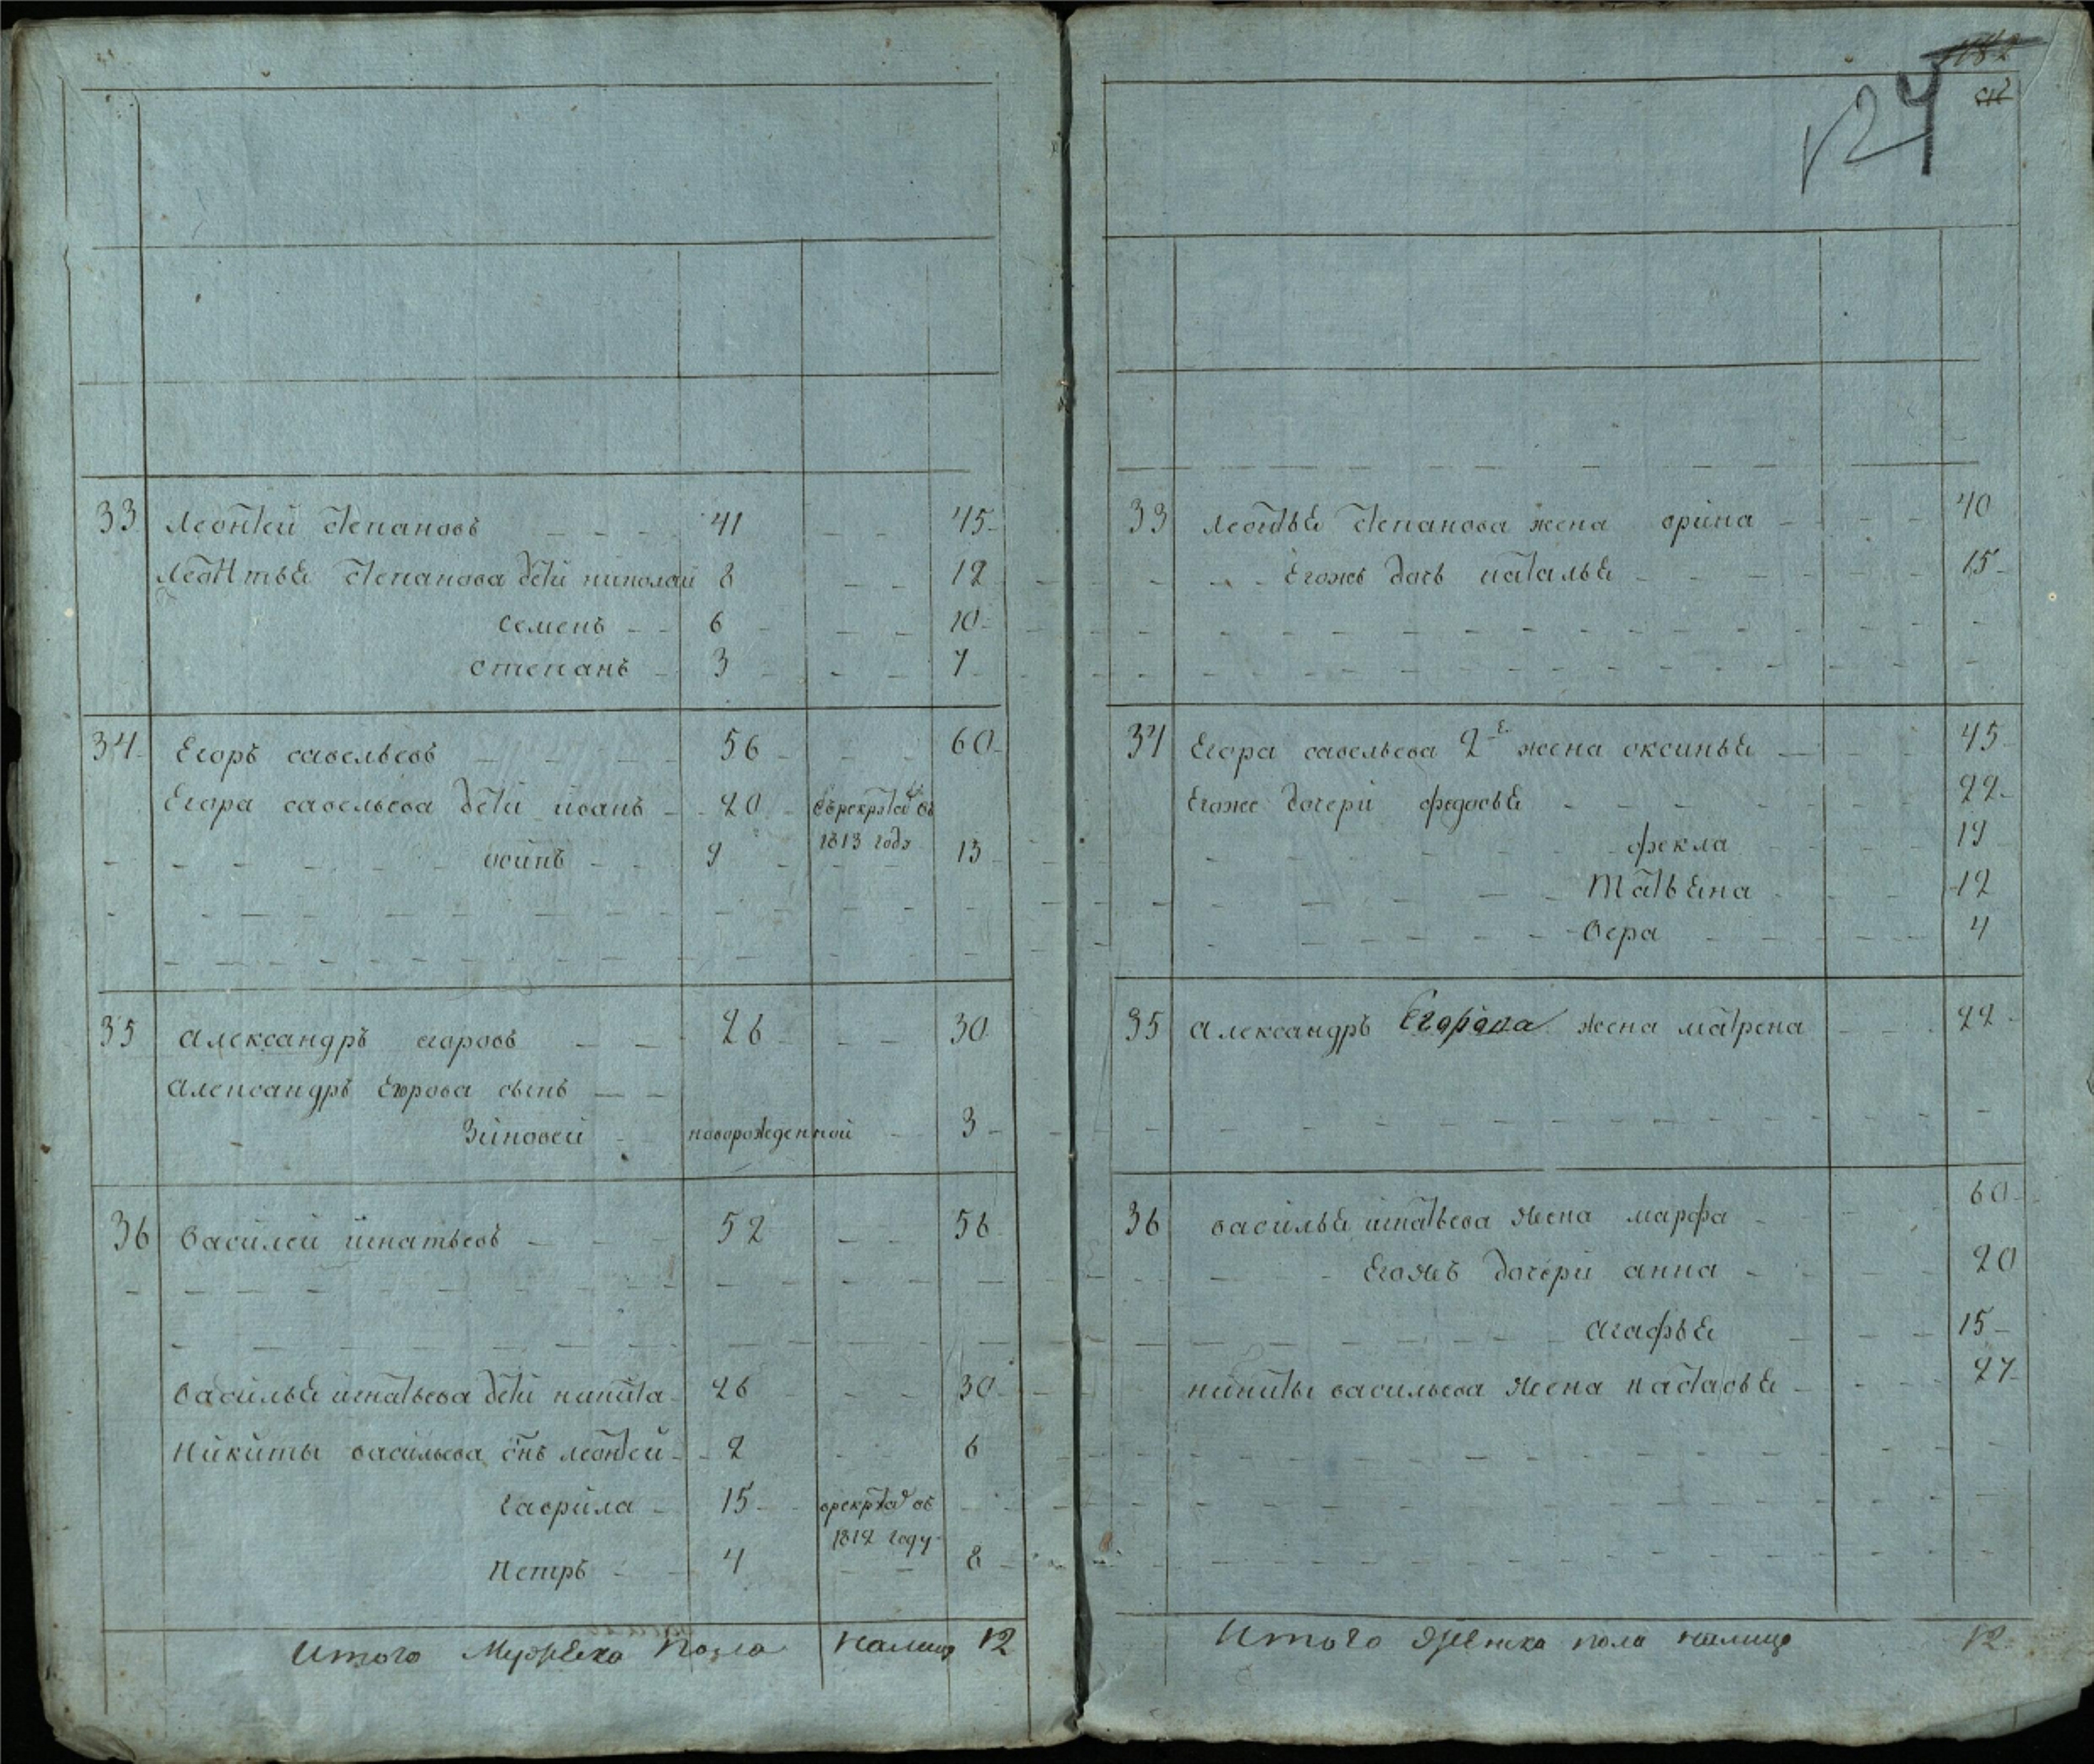 33 Леонтей степановъ 41 45
Леонтья степанова дети николай 8 12
семенъ 6 10
степанъ 3 7
34 Егоръ савельевъ 56 60
Егора савельева дети иванъ 20 въ рекруты въ
1813 годя
осипъ 9 13
35 Александръ егоровъ 26 30
Александръ Егорова сынъ
Зиновей новорожденной 3
36 Василей игнатьевъ 52 56
Василья игнатьева дети никита 26 30
Никиты васильева снъ леонтей 2 6
гаврила 15 врекруты въ
1812 году
Петръ 4 8
Итого Мужеска пола налицо 12
182
124
33 Леонтья степанова жена орина 40
Егожъ дочь наталья 15
34 Егора савельева 2я жена оксинья 45
Егоже дочери федосья 22
фекла 19
Татьяна 12
вера 4
35 Александръ Егорова жена матрена 22
36 василья игнатьева жена марфа 60
Егожъ дочери анна 20
агафья 15
никиты васильева жена настасья 27
Итого женска пола налицо 12